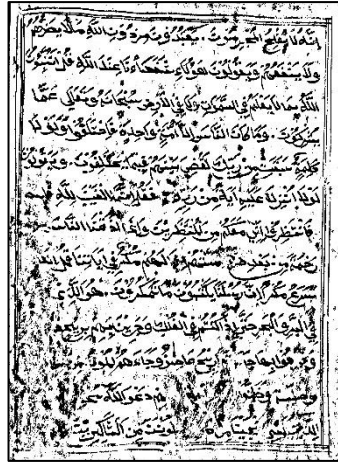 إنه لا يفلح المجرمون ويعبدون من دون الله ما لا يضرهم
ولا ينفعهم ويقولون هؤلاء شفعاؤنا عند الله قل أتنبئون
الله بما لا يعلم في السموات ولا في الأرض سبحانه وتعالى عما
يشركون وما كان الناس إلا أمة واحدة فاختلفوا ولولا
كلمة سبقت من ربك لقضي بينهم فيما فيه يختلفون ويقولون
لولا أنزل عليه آية من ربه فقل إنما الغيب لله
فانتظروا إني معكم من المنتظرين وإذا أذقنا الناس
رحمة من بعد ضراء مستهم إذا لهم مكر في آياتنا قل الله
أسرع مكرا إن رسلنا يكتبون ما تمكرون هو الذي
في البر والبحر حتى إذا كنتم في الفلك وجرين بهم بريح
ريح عاصف وجاءهم الموج من
دعوا الله
من الشاكرين